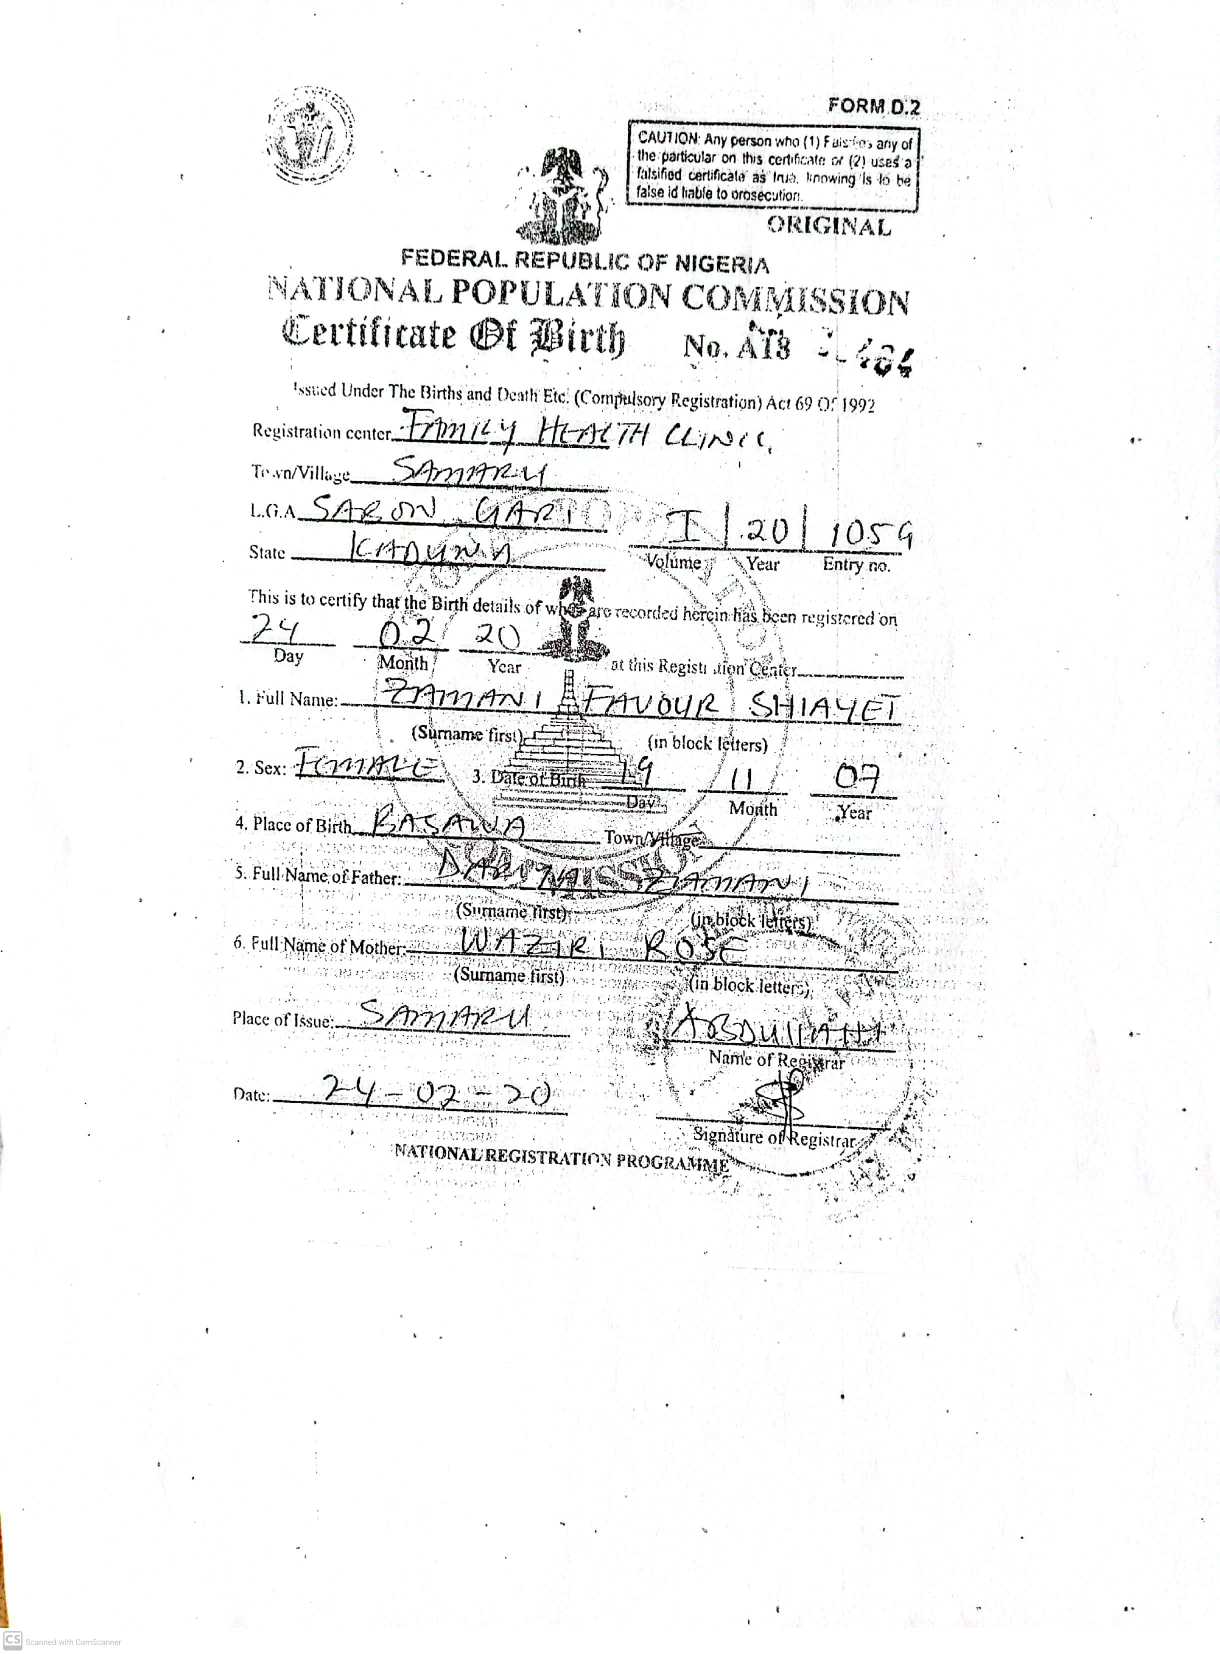 FORM D.2
CAUTION: Any person who (1) Falsifies any of
the particular on this certificate or (2) uses a
falsified certificate as true, knowing is to be
false id liable to orosecution.
ORIGINAL
FEDERAL REPUBLIC OF NIGERIA
NATIONAL POPULATION COMMISSION
Certificate Of Birth No. A18 484
Issued Under The Births and Death Etc. (Compulsory Registration) Act 69 Of 1992
Registration center FAMILY HEALTH CLINIC,
Town/Village SAMARU
L.G.A SABON GARI I 20 1059
State KADUNA Volume Year Entry no.
This is to certify that the Birth details of whos are recorded herein has been registered on
24 02 20
Day Month Year at this Registration Center
1. Full Name: ZAMANI FAVOUR SHIAYET
(Surname first) (in block letters)
2. Sex: FEMALE 3. Date of Birth 19 11 07
Day Month Year
4. Place of Birth BASAWA Town/Village
5. Full Name of Father: ZAMANI
(Surname first) (in block letters)
6. Full Name of Mother: WAZIRI ROSE
(Surname first) (in block letters)
Place of Issue: SAMARU ABDULLAHI
Name of Registrar
Date: 24-02-20
Signature of Registrar
NATIONAL REGISTRATION PROGRAMME
CS Scanned with CamScanner